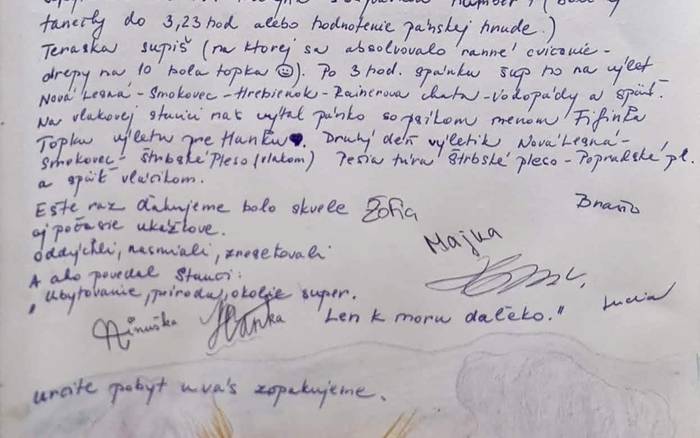 tanečky do 3,23 hod alebo hodnotenie pánskej hnude.)
Teraska supiš (na ktorej sa absolvovalo ranné cvičenie -
drepy na 10 bola topka ☺). Po 3 hod. spánku šup ho na výlet
Nová Lesná - Smokovec - Hrebienok - Rainerova chata - vodopády a späť.
Na vlakovej stanici nás vítal pánko so psíkom menom Fifinka
Topka výletu pre Hanku ♥. Druhý deň výletik Nová Lesná -
Smokovec - Štrbské Pleso (vlakom) Pešia túra Štrbské pleso - Popradské pl.
a späť vláčikom.
Ešte raz ďakujeme bolo skvele Žofia
aj počasie ukážkove.
Braňo
oddýchli, nasmiali, zresetovali
Majka
A ako povedal Stanci:
"Ubytovanie, príroda, okolie super.
Lucia
Ninuška Hanka Len k moru ďaleko."
určite pobyt u vás zopakujeme.